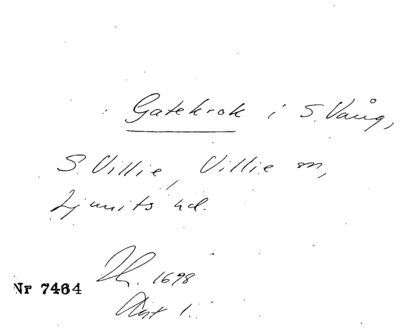 Gatekrok i S. Vång,
S. Villie, Villie sn,
Ljunits hd.
1698
Nr 7464
Akt 1.